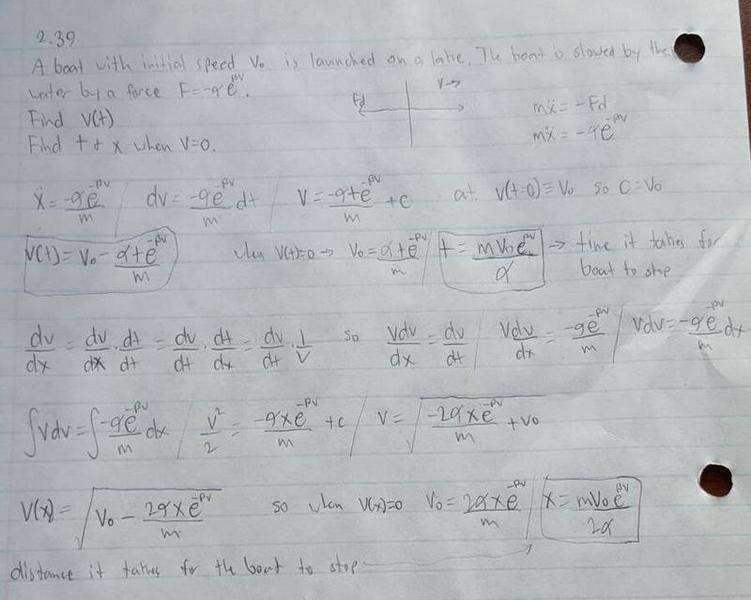 2.39
A boat with initial speed V₀ is launched on a lake. The boat is slowed by the
water by a force F=-αe^βv.
Find V(t)
Find t & x when V=0.
Fd V→
mẍ = -Fd
mẍ = -αe^-βv
ẍ = -αe^-βv/m / dv = -αe^-βv/m dt / V = -αte^-βv/m + c at v(t=0) ≡ V₀ so C=V₀
V(t) = V₀ - αte^-βv/m when V(t)=0 → V₀ = αte^-βv/m / t = mV₀e^βv/α → time it takes for
boat to stop
dv/dx = dv/dx · dt/dt = dv/dt · dt/dx = dv/dt · 1/V so Vdv/dx = dv/dt / Vdv/dx = -αe^-βv/m / Vdv = -αe^-βv/m dx
∫Vdv = ∫-αe^-βv/m dx / V²/2 = -αxe^-βv/m + c / V = √(-2αxe^-βv/m + V₀)
V(x) = √(V₀ - 2αxe^-βv/m) so when V(x)=0 V₀ = 2αxe^-βv/m / x = mV₀e^βv/2α
distance it takes for the boat to stop